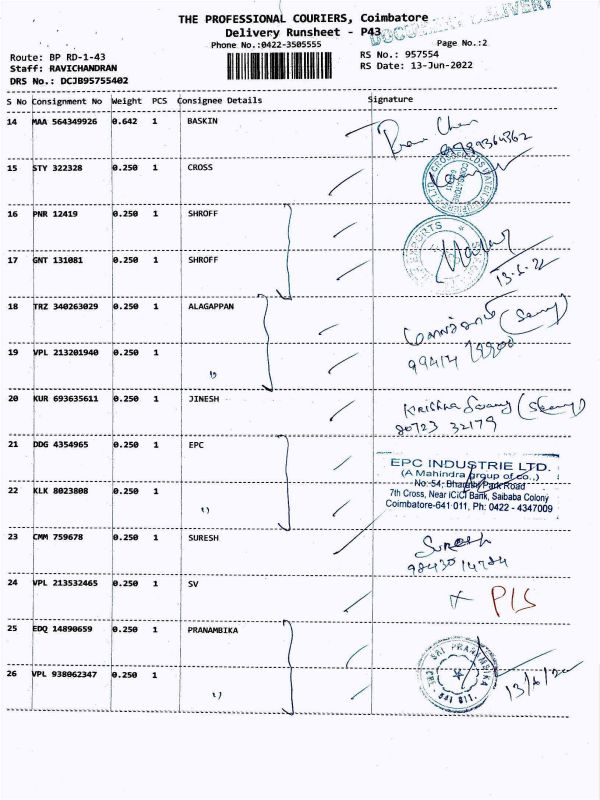 THE PROFESSIONAL COURIERS, Coimbatore
Delivery Runsheet - P43
DOCUMENT DELIVERY
Phone No.:0422-3505555
Page No.:2
Route: BP RD-1-43
RS No.: 957554
Staff: RAVICHANDRAN
RS Date: 13-Jun-2022
DRS No.: DCJB95755402
S No Consignment No Weight PCS Consignee Details Signature
14 MAA 564349926 0.642 1 BASKIN
15 STY 322328 0.250 1 CROSS
16 PNR 12419 0.250 1 SHROFF
17 GNT 131081 0.250 1 SHROFF
13-6-22
18 TRZ 340263029 0.250 1 ALAGAPPAN
19 VPL 213201940 0.250 1 "
20 KUR 693635611 0.250 1 JINESH
Krishna
80723 32179
21 DDG 4354965 0.250 1 EPC
EPC INDUSTRIE LTD.
(A Mahindra group of co.,)
No: 54, Bharathi Park Road
22 KLK 8023808 0.250 1 "
7th Cross, Near ICICI Bank, Saibaba Colony
Coimbatore-641 011. Ph: 0422 - 4347009
23 CMM 759678 0.250 1 SURESH
Suresh
98430 14784
24 VPL 213532465 0.250 1 SV
25 EDQ 14890659 0.250 1 PRANAMBIKA
SRI PRANAMBIKA
26 VPL 938062347 0.250 1 "
13/6/22